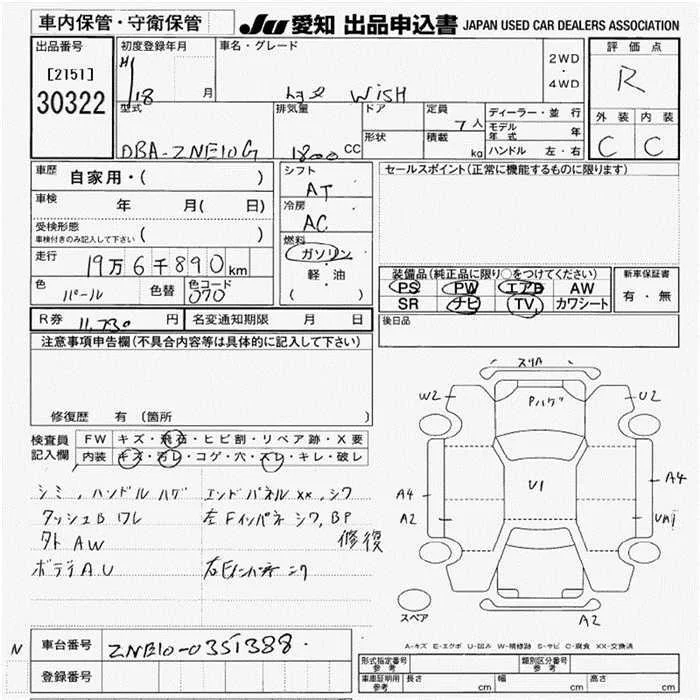 車内保管・守衛保管
JU 愛知 出品申込書 JAPAN USED CAR DEALERS ASSOCIATION
出品番号
[2151]
30322
初度登録年月
H/18 月
車名・グレード
トヨタ WiSH
2WD
・
4WD
評価点
R
外装 内装
C C
型式
DBA-ZNE10G
排気量
1800 CC
ドア
形状
定員
7人
積載
kg
ディーラー・並行
モデル年式 年
ハンドル 左・右
車歴 自家用・( )
車検 年 月( 日)
受検形態
車検付きのみ記入して下さい ( )
走行 19万6千890km
色 パール 色替 色コード 070
シフト
AT
冷房
AC
燃料
ガソリン
軽・油
( )
セールスポイント(正常に機能するものに限ります)
装備品(純正品に限り○をつけてください)
PS PW エアB AW
SR ナビ TV カワシート
新車保証書
有・無
R券 11,730 円 名変通知期限 月 日
後日品
注意事項申告欄(不具合内容等は具体的に記入して下さい)
修復歴 有 (箇所 )
検査員
記入欄
FW キズ・飛石・ヒビ割・リペア跡・X要
内装 キズ・汚レ・コゲ・穴・スレ・キレ・破レ
シミ,ハンドルハゲ エンドパネルxx,シワ
ダッシュB ワレ 左Fインパネ シワ,BP
タト AW 修復
ボディA.U
スリA
Pハゲ
W2
U2
U1
A4
A4
A2
A2
スペア
A-キズ E-エクボ U-凹み W-補修跡 S-サビ C-腐食 XX-交換済
N
車台番号 ZNE10-0351388
登録番号
形式指定番号
参考
類別区分番号
参考
車庫証明用
参考
長さ cm 幅 cm 高さ cm